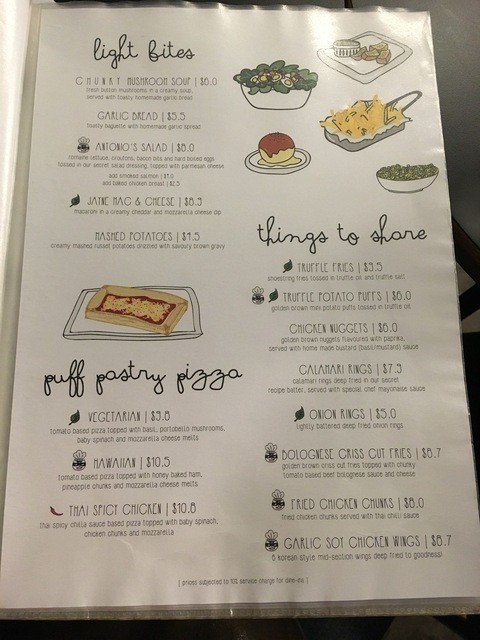 light bites
CHUNKY MUSHROOM SOUP | $8.0
fresh button mushrooms in a creamy soup,
served with toasty homemade garlic bread
GARLIC BREAD | $5.5
toasty baguette with homemade garlic spread
ANTONIO'S SALAD | $8.0
romaine lettuce, croutons, bacon bits and hard boiled eggs
tossed in our secret salad dressing, topped with parmesan cheese
add smoked salmon |
add baked chicken breast | $2.5
JAYNE MAC & CHEESE | $8.9
macaroni in a creamy cheddar and mozzarella cheese dip
MASHED POTATOES | $4.5
creamy mashed russet potatoes drizzled with savoury brown gravy
puff pastry pizza
VEGETARIAN | $9.8
tomato based pizza topped with basil, portobello mushrooms,
baby spinach and mozzarella cheese melts
HAWAIIAN | $10.5
tomato based pizza topped with honey baked ham,
pineapple chunks and mozzarella cheese melts
THAI SPICY CHICKEN | $10.8
thai spicy chilla sauce based pizza topped with baby spinach,
chicken chunks and mozzarella
things to share
TRUFFLE FRIES | $9.5
shoestring fries tossed in truffle oil and truffle salt
TRUFFLE POTATO PUFFS | $8.0
golden brown mini potato puffs tossed in truffle oil
CHICKEN NUGGETS | $8.0
golden brown nuggets flavoured with paprika,
served with home made bustard (basil/mustard) sauce
CALAMARI RINGS | $7.9
calamari rings deep fried in our secret
recipe batter, served with special chef mayonaise sauce
ONION RINGS | $5.0
lightly battered deep fried onion rings
BOLOGNESE CRISS CUT FRIES | $8.7
golden brown criss cut fries topped with chunky
tomato based beef bolognese sauce and cheese
FRIED CHICKEN CHUNKS | $8.0
fried chicken chunks served with thai chilli sauce
GARLIC SOY CHICKEN WINGS | $8.7
korean style mid-section wings deep fried to goodness!
[ prices subjected to 10% service charge for dine-ins ]